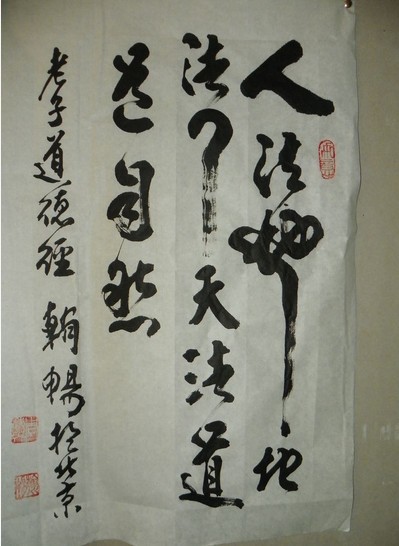 人法地地
法天天法道
道自然
老子道德經 輔暢於北京